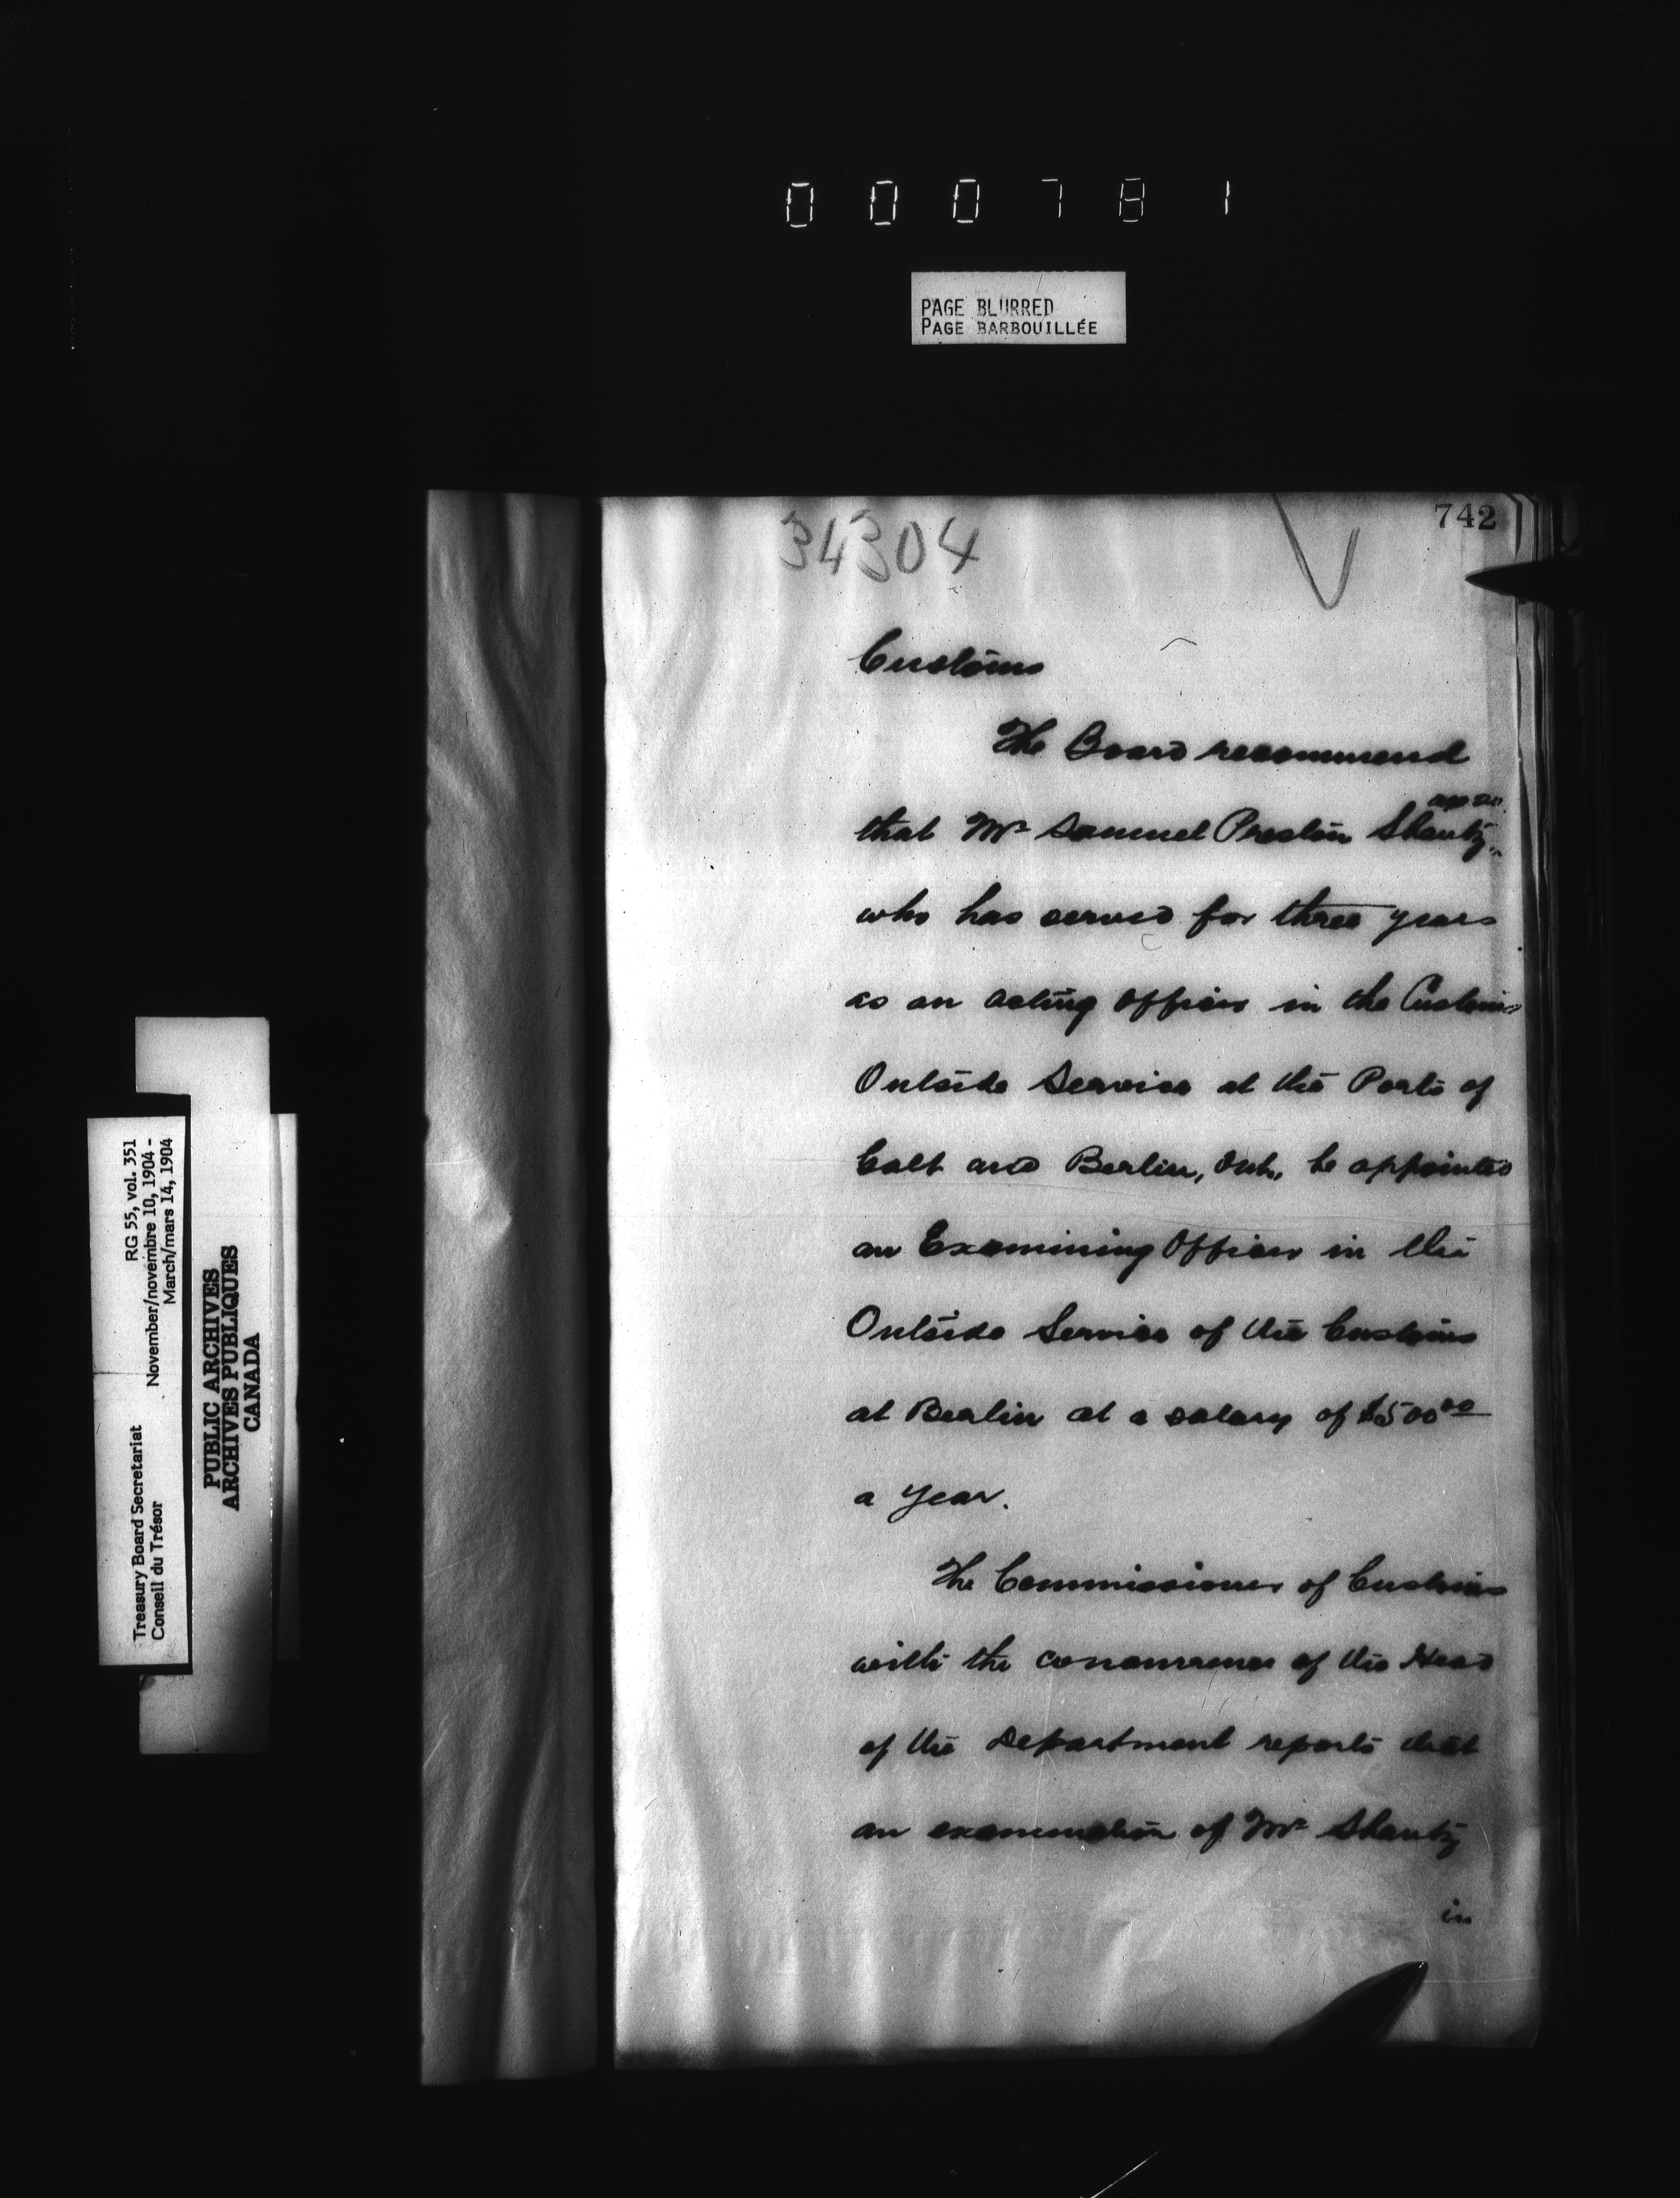 000781
PAGE BLURRED
PAGE BARBOUILLÉE
742
34304
Customs
The Board recommend
that Mr Samuel Preston Shantz,
age
who has served for three years
as an acting officer in the Customs
Outside Service at the Ports of
Galt and Berlin, Ont., be appointed
an Examining Officer in the
Outside Service of the Customs
at Berlin at a salary of $500 00
a year.
The Commissioner of Customs
with the concurrence of the Head
of the Department reports that
an examination of Mr Shantz
in
Treasury Board Secretariat RG 55, vol. 351
Conseil du Trésor November/novembre 10, 1904 -
March/mars 14, 1904
PUBLIC ARCHIVES
ARCHIVES PUBLIQUES
CANADA